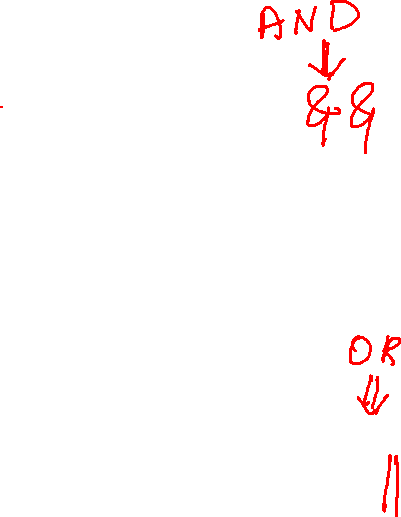 AND
&&
OR
||